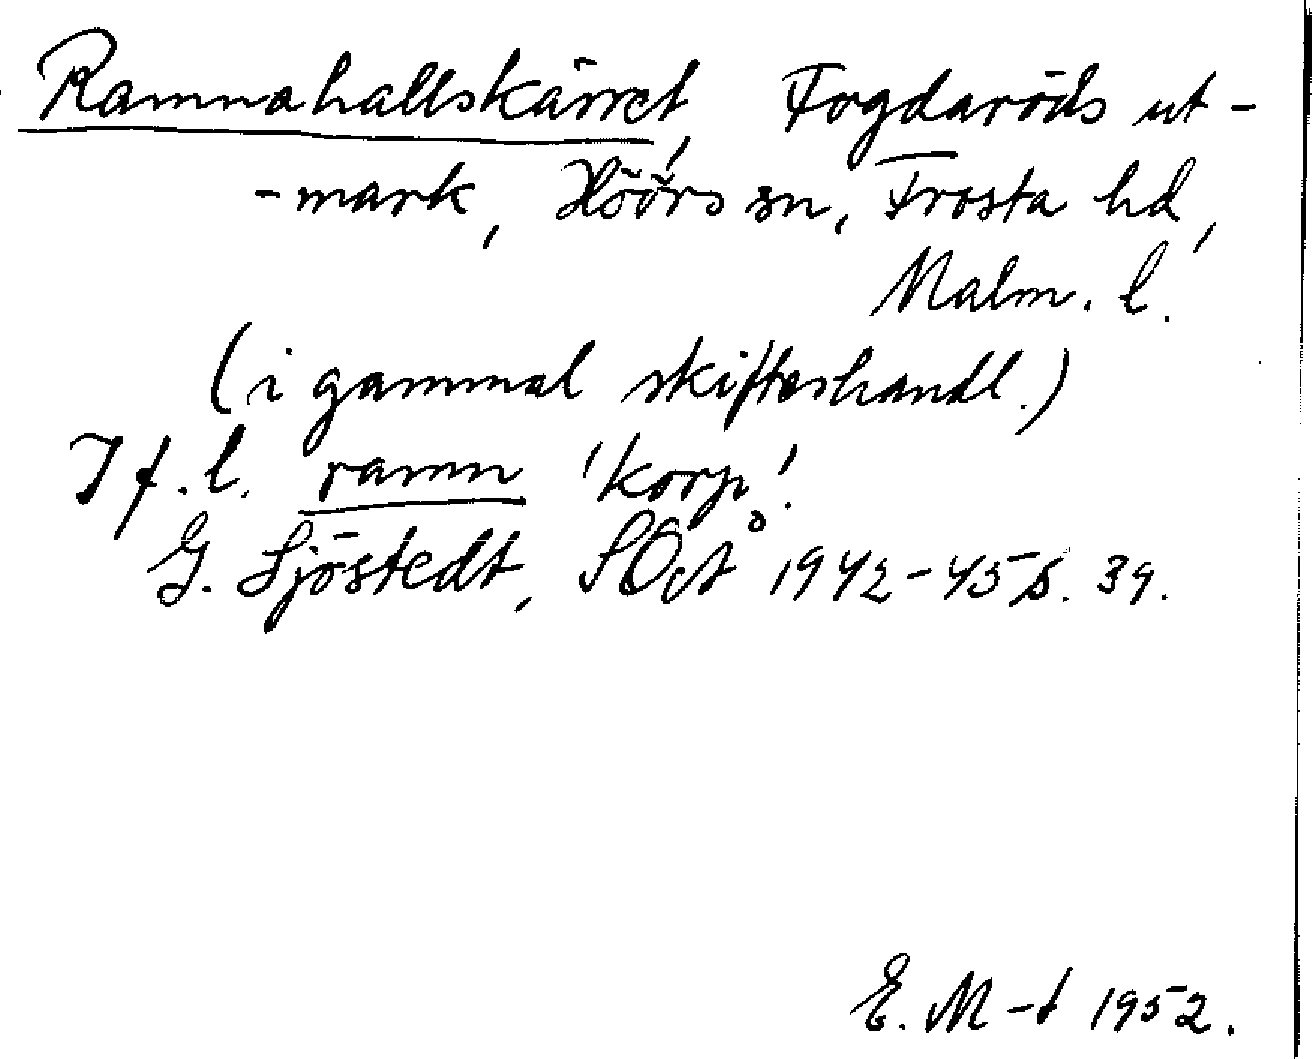 Ramnahallskärret, Fogdaröds ut-
-mark, Höörs sn, Frosta hd,
Malm. l.
(i gammal skifteshandl.)
I f. l. ramn 'korp'.
G. Sjöstedt, SOÅ 1942-45 s. 39.
E. M-t 1952.